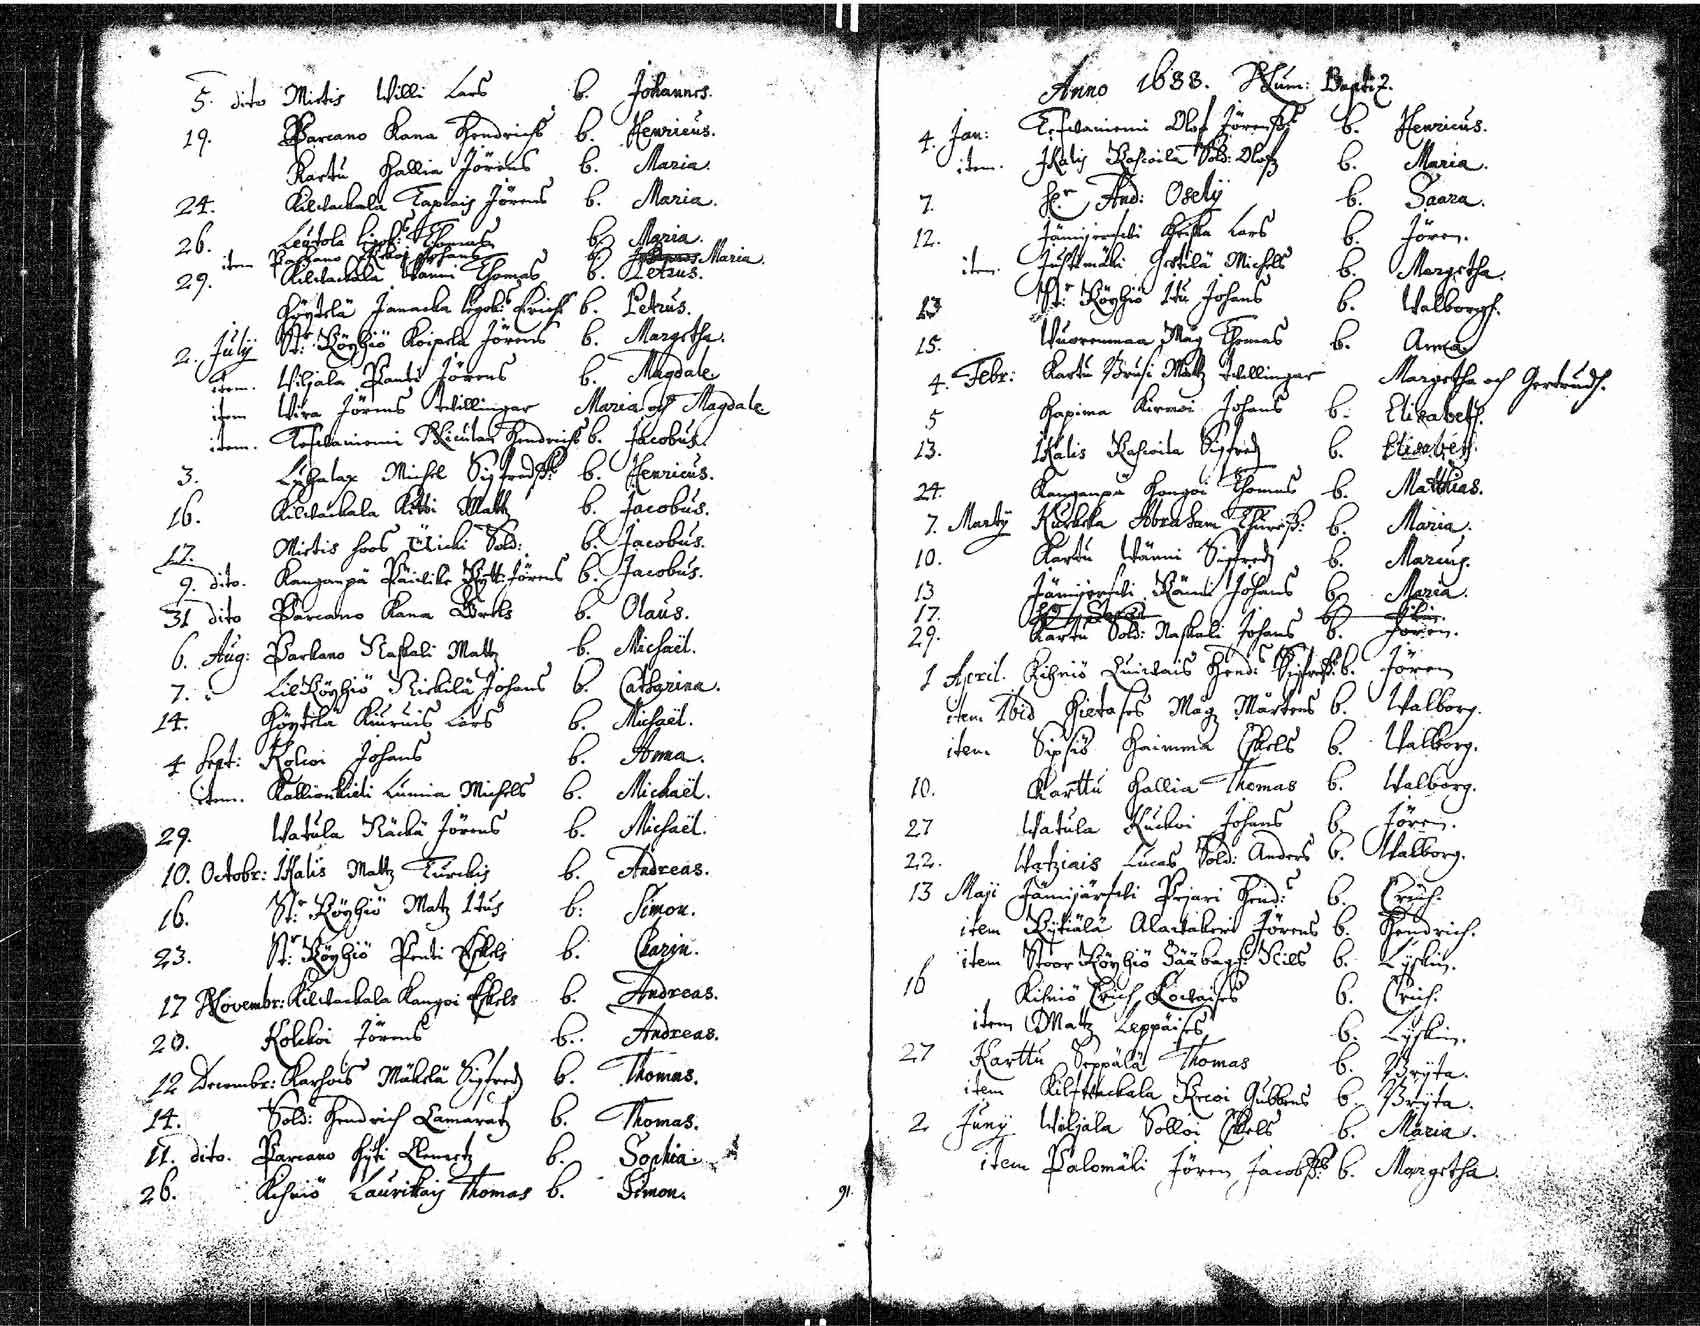 5. dito Mietis Willi Lars b. Johannes.
19. Parcano Kana Hendrichs b. Henricus.
Kartu Hallia Jörens b. Maria.
24. Kilwackala Tapiais Jörens b. Maria.
26. Leutola Thomas b. Maria.
item Parcano Johans b. Maria.
29. Kilwackala Wänni Thomas b. Petrus.
Höytelä Janacka Erichs b. Petrus.
2. Julij St:r Röyhiö Koipela Jörens b. Margetha.
item. Wiljala Panti Jörens b. Magdale
item Wira Jörens twillingar Maria och Magdale
item. Tefwaniemi Hendrichs b. Jacobus.
3. Lyhalax Michel Sigfredss: b. Henricus.
16. Kilwackala Kitti Matz b. Jacobus.
17. Mietis hoos Sold: b. Jacobus.
9. dito. Kanganpä Rytt: Jörens b. Jacobus.
31 dito Parcano Kana b. Olaus.
6. Aug: Parkano Matz b. Michaël.
7. Lill Röyhiö Nickilä Johans b. Catharina.
14. Höytelä Kiuruis Lars b. Michaël.
4 Sept: Kolcoi Johans b. Anna.
item. Kallionkieli Lumia Michels b. Michaël.
29. Watula Räckä Jörens b. Michaël.
10. Octobr: Ikalis Matz Turckis b. Andreas.
16. St:r Röyhiö Matz Itus b: Simon.
23. St:r Röyhiö Penti Eskels b. Charin.
17 Novembr: Kilwackala Kangoi Eskels b. Andreas.
20. Kolckoi Jörens b. Andreas.
12 Decembr: Karhois Mäkelä Sigfredz b. Thomas.
14. Sold: Hendrich Lamaratz b. Thomas.
11. dito. Parcano Hyti Clemetz b. Sophia
26. Kihniö Laurikais Thomas b. Simon.
91.
Anno 1688. Num: Baptiz.
4. Jan: Tefwaniemi Olof Jörenss: b. Henricus.
item. Ikalis Rascoila Sold: Olofz b. Maria.
7. H:r And: Oselij b. Saara.
12. Jämijerfwi Heska Lars b. Jören.
item. Juhtimäki Gertilä Michels b. Margetha.
13 St:r Röyhiö Itu Johans b. Walborgh.
15. Wuorenmaa Mag Thomas b. Anna
4. Febr: Kartu Brusi Matz twillingar Margetha och Gertrudh.
5 Hapima Kirmoi Johans b. Elisabeth.
13. Ikalis Rascoila Sigfredz b. Elisabeth.
24. Kanganpä Hongoi Thomas b. Matthias.
7. Martij Kurkela Abraham Thuress: b. Maria.
10. Kartu Wänni Sigfredz b. Marcus.
13 Jämijerfwi Räni Johans b. Maria.
17.
29. Kartu Sold: Naskali Johans b. Jören.
1 April. Kihniö Luiwais Hend: Sigfredss: b. Jören
item Ibid Hietases Mag Mårtens b. Walborg.
item Sipsiö Haimma Eskels b. Walborg.
10. Karttu Hallia Thomas b. Walborg.
27 Watula Kuckoi Johans b. Jören.
22. Watziais Lucas Sold: Anders b. Walborg.
13 Maji Jämijärfwi Pejari Hend:s b. Erich.
item Rytiälä Alaitaberi Jörens b. Hendrich.
item Stoor Röyhiö Nils b. Lyskin.
16 Kihniö Erich b. Erich.
item Matz Leppäises b. Lyskin.
27 Karttu Seppälä Thomas b. Bryta.
item Kilwackala Krcoi Gubbens b. Bryta.
2 Junij Wiljala Solloi Eskels b. Maria.
item Palomäki Jören Jacobss: b. Margetha.